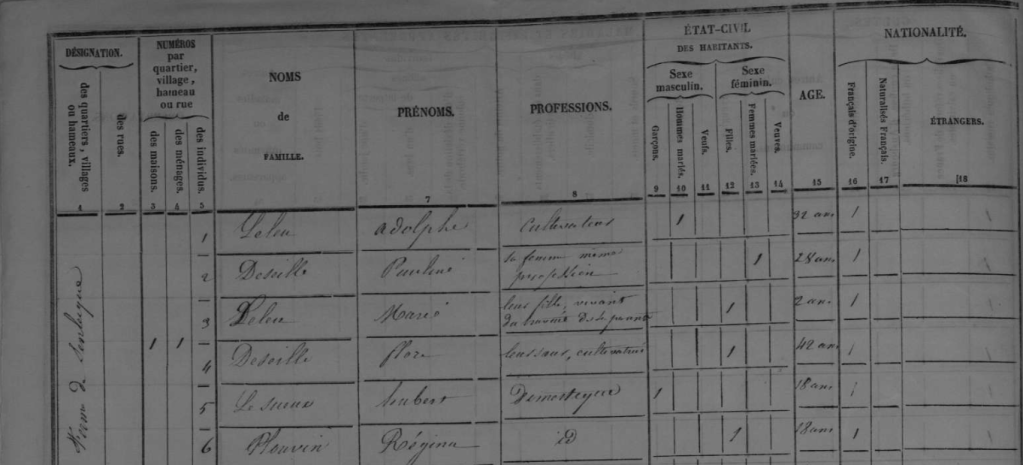 DÉSIGNATION.
des quartiers, villages ou hameaux.
des rues.
NUMÉROS
par
quartier,
village,
hameau
ou rue
des maisons.
des ménages.
des individus.
NOMS
de
FAMILLE.
PRÉNOMS.
PROFESSIONS.
ÉTAT-CIVIL
DES HABITANTS.
Sexe
masculin.
Sexe
féminin.
Garçons.
Hommes mariés.
Veufs.
Filles.
Femmes mariées.
Veuves.
AGE.
NATIONALITÉ.
Français d'origine.
Naturalisés Français.
ÉTRANGERS.
1 2 3 4 5 7 8 9 10 11 12 13 14 15 16 17 18
ferme de
1 Leleu adolphe cultivateur 1 32 ans 1
2 Deseille Pauline sa femme même 1 28 ans 1
profession
3 Leleu Marie leur fille, vivant 1 2 ans 1
du travail de
1 1
4 Deseille flore cultivateur 1 42 ans 1
5 Le sueur hubert Domestique 1 18 ans 1
6 Plouvin Régina id 1 18 ans 1